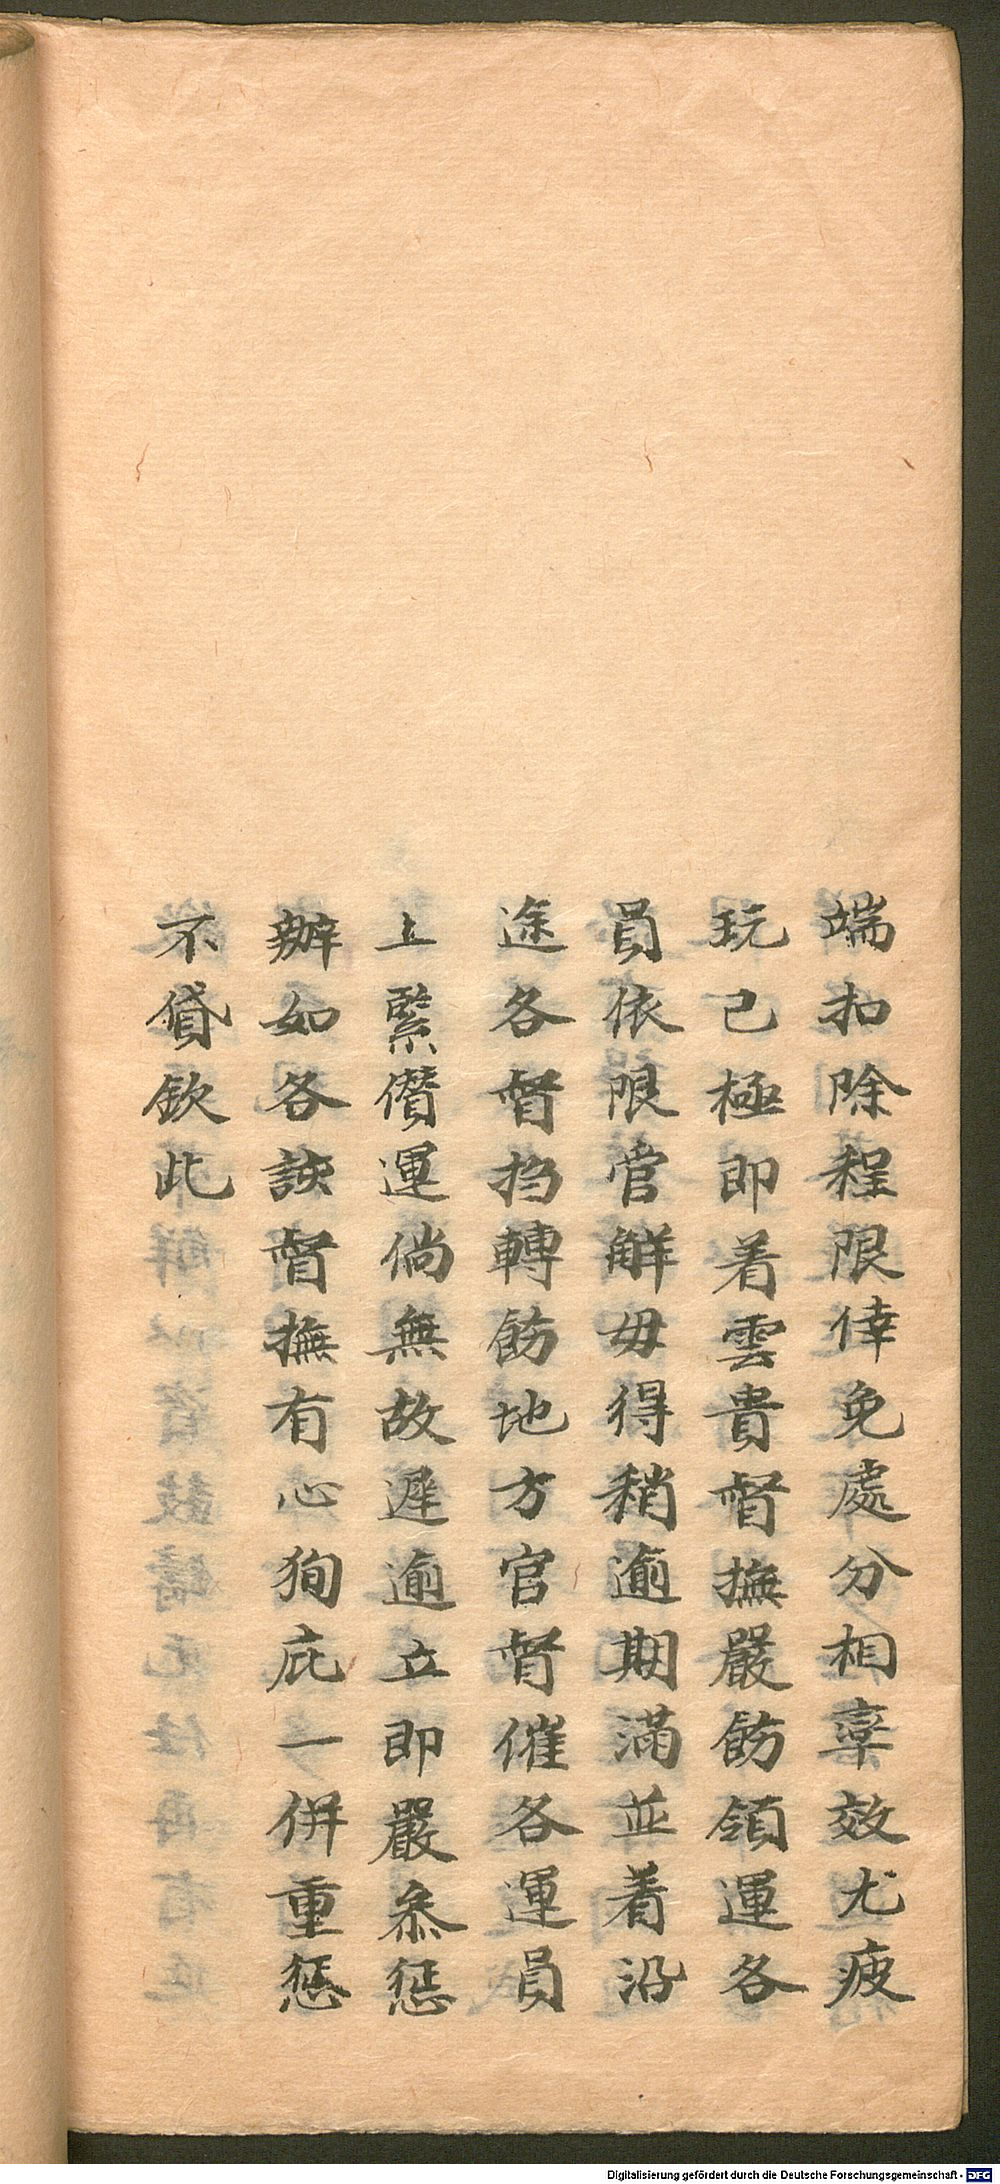 端扣除程限倖免處分相率效尤疲
玩已極即着雲貴督撫嚴飭領運各
員依限管解毋得稍逾期滿並着沿
途各督撫轉飭地方官督催各運員
上緊儹運倘無故遲逾立即嚴叅懲
辦如各該督撫有心狥庇一併重懲
不貸欽此
Digitalisierung gefördert durch die Deutsche Forschungsgemeinschaft - DFG